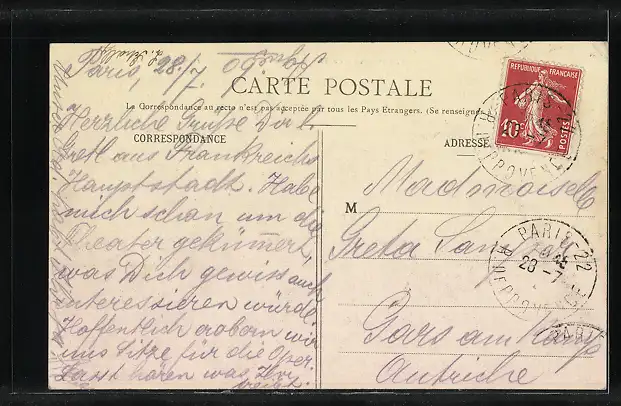 Paris, 28./7. 09.
CARTE POSTALE
La Correspondance au recto n'est pas acceptée par tous les Pays Etrangers. (Se renseigner
CORRESPONDANCE
ADRESSE
Herzliche Grüße Dir l.
Gretl aus Frankreichs
Hauptstadt. Habe
mich schon um die
Theater gekümmert,
was Dich gewiss auch
interessieren würde.
Hoffentlich erobern wir
uns Sitze für die Oper.
Lasst hören was Ihr
M
Mademoiselle
Greta
Gars am Kamp
Autriche
REPUBLIQUE FRANÇAISE
10c
POSTES
PARIS 22
R. DE PROVENCE
28 - 7